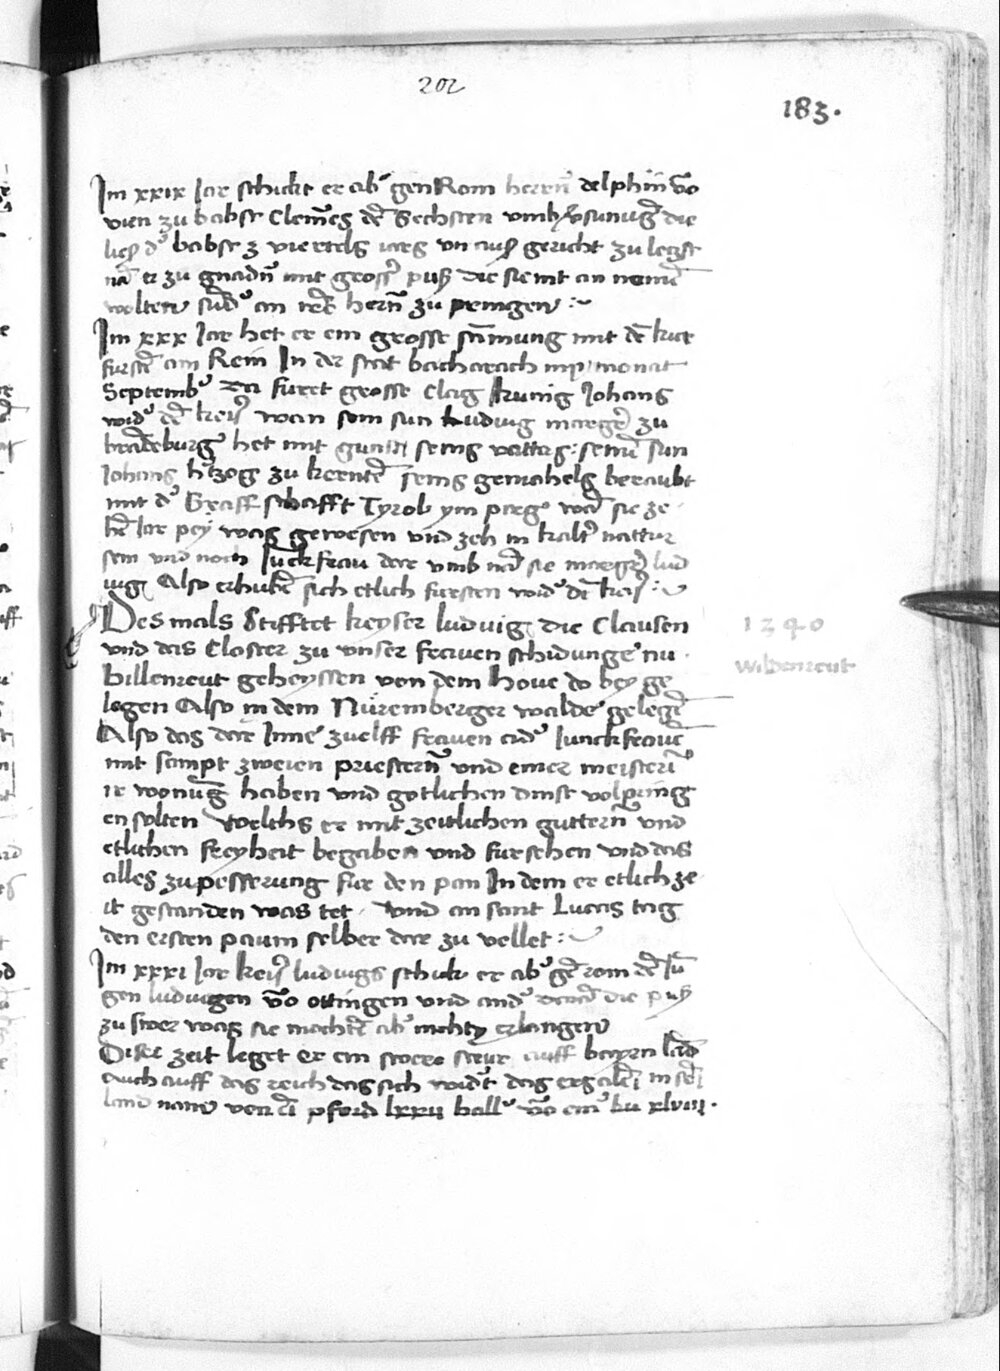 202
183.
Im xxix Jar schickt er ab' gen Rom herrn̄ delphin vō
vien zu babst Clemēs dē Sechsten vmb v̄sunūg die
liesz d' babst z viertels iars vn ausz gericht zu letzst
nā er zu gnadn̄ mit gross' pusz die sie nit an nemē
wolten sūd' an herrn̄ zu pringen :~
Im xxx Jar het er ein grosse sāmung mit dē kur
furstē am Rein In der stat bacharach imp monat
Septemb' Da furet grosse Clag kunig Johans
wid' dē keis' wan sein sun Ludwig margg' zu
brādeburg het mit seins vatters : seinē sun
Johans h'tzog zu kerntē seins gemahels beraubt
mit d' Graffschafft Tyrol ym parg wā sie ze
hē Jar pey was gewesen vnd zeh in kalt' nattur
sein vnd noch Junckfrau dar vmb nā sie margg' lud
wig Also erhubē sich etlich fursten wid' dē keis' :~
Des mals Stifftet keyser ludwig die Clausen
vnd das Closter zu vnser frauen schidunge nu
billenreut geheyssen von dem houe do bey ge
legen Also in dem Nüremberger walde gelegē
Also das dar Inne zuelff frauen ad' Junckfrauē
mit sampt zweien priestern̄ vnd einer meisterī
ir wonūg haben vnd gotlichen dinst volpring
en solten Welchs er mit zeitlichen guttern̄ vnd
etlichen freyheit begaben vnd fursehen vnd das
alles zu pesserung fur den pan In dem er etlich ze
it gestanden was tet Vnd an sant Lucas tag
den ersten paum selber dar zu vellet :~
Im xxxi Jar keis' ludwigs schickt er ab' gē rom dē Jū
gen ludwigen vō ottingen vnd and' die pusz
zu swer was sie mochtē ab' nichtz erlangen
Diser zeit leget er ein swere steur auff bayrn lād
auch auff das reich das sich widt' das ergalt in sēī
land nam von eī pferd lxxii hall' vō ein' ku xlviii.
1340
Wildenreut